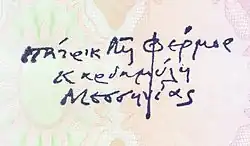 Πάτρικ Λῆ Φέρμορ
Καρδαμύλη
Μεσσηνίας